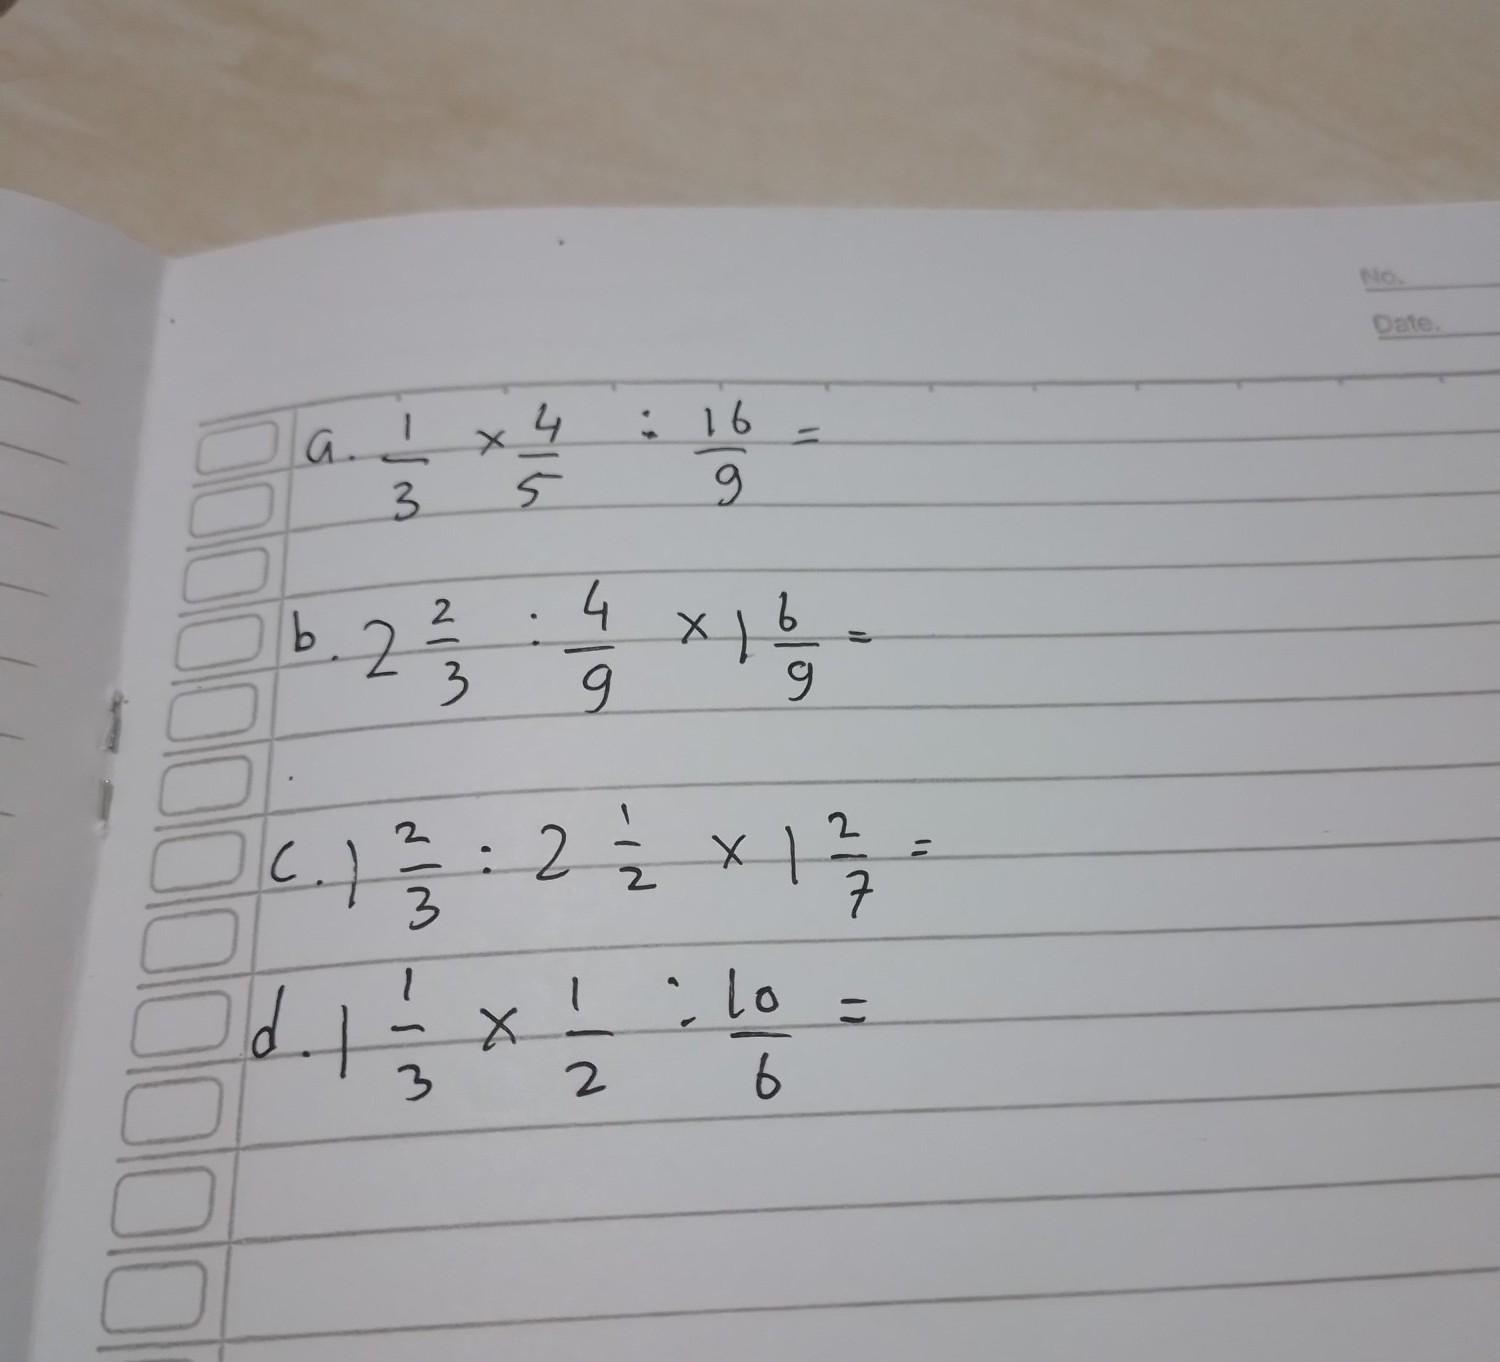 No.
Date.
a. 1/3 × 4/5 : 16/9 =
b. 2 2/3 : 4/9 × 1 6/9 =
c. 1 2/3 : 2 1/2 × 1 2/7 =
d. 1 1/3 × 1/2 : 10/6 =